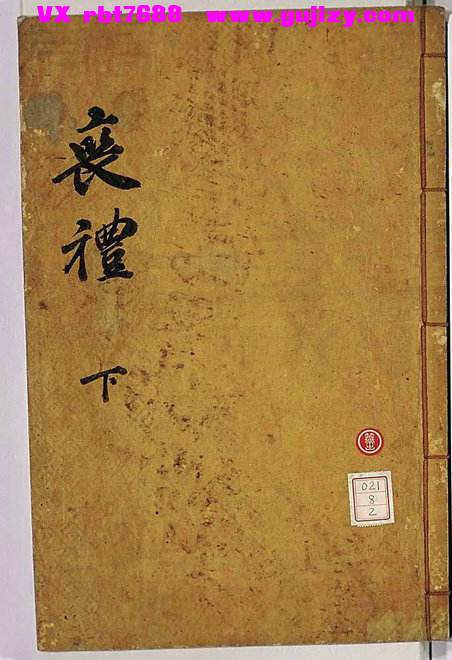 VX rbt7688 www.gujizy.com
喪禮
下
021
8
2